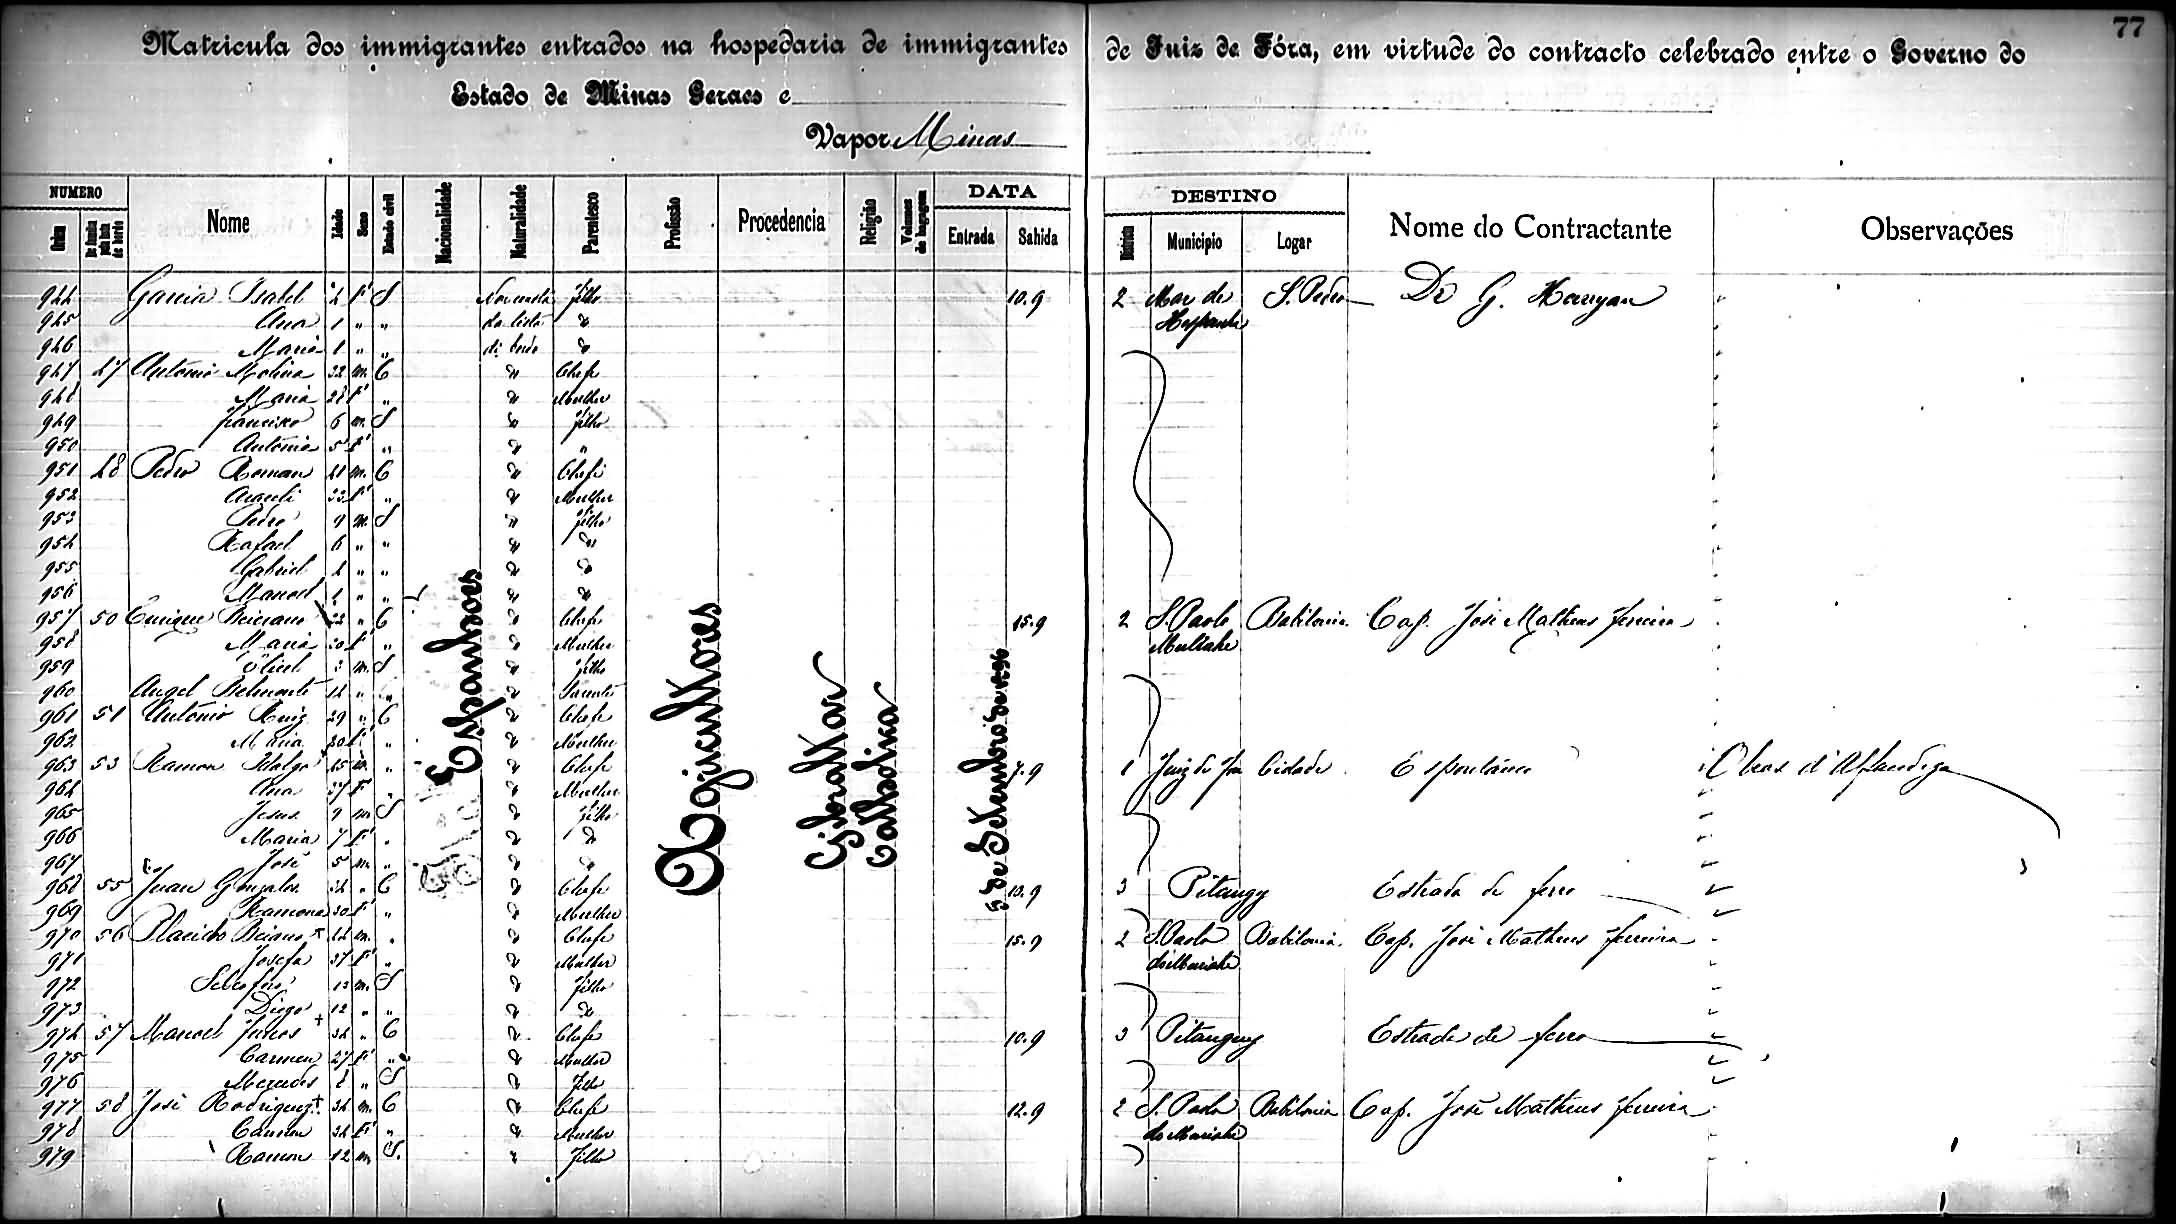 77
Matricula dos immigrantes entrados na hospedaria de immigrantes de Juiz de Fóra, em virtude do contracto celebrado entre o Governo do
Estado de Minas Geraes e
Vapor Minas
NUMERO Nome Idade Sexo Estado civil Nacionalidade Naturalidade Parentesco Profissão Procedencia Religião Volumes de bagagem DATA Entrada Sahida DESTINO Districto Municipio Logar Nome do Contractante Observações
Ordem
Espanhoes
Agricultores
Gibraltar
Catholica
5 de Setembro de 1896
944 Garcia Isabel F S Não consta filho 10.9 2 Mar de S. Pedro Dr G.
945 Ana 1 " " da lista " Hespanha
946 Maria 1 " " de bordo "
947 47 Antonio Molina 32 m. C " Chefe
948 Maria 28 F " " Mulher
949 Francisco 6 m. S " filho
950 Antonia 5 F " " "
951 48 Pedro Roman m. C " Chefe
952 Araceli 33 F " " Mulher
953 Pedro 9 m. S " filho
954 Rafael 6 " " " "
955 Gabriel " " " "
956 Manoel 1 " " " "
957 50 Enrique 33 " C " Chefe 15.9 2 S. Paulo Babilonia Cap. José Matheus Ferreira
958 Maria 30 F " " Mulher Muriahe
959 3 m. S " filho
960 Angel Belmonte " " " Parente
961 51 Antonio Ruiz 29 " C " Chefe
962 Maria 30 F " " Mulher
963 53 Ramon Hidalgo 45 m. " " Chefe 7.9 1 Juiz de Fora Cidade Espontaneo Obras d'Alfandega
964 Ana 37 F " " Mulher
965 Jesus 9 m S " filho
966 Maria 7 F " " "
967 José 5 m. " " "
968 55 Juan Gonzales 34 " C " Chefe 10.9 3 Pitanguy Estrada de ferro
969 Ramona 30 F " " Mulher
970 56 Placido 44 m. " " Chefe 15.9 2 S. Paulo Babilonia Cap. José Matheus Ferreira
971 Josefa 37 F " " Mulher do Muriahe
972 13 m. S " filho
973 Diego 12 " " " "
974 57 Manoel 34 " C " Chefe 10.9 3 Pitanguy Estrada de ferro
975 Carmen 27 F " " Mulher
976 Mercedes 8 " S " filho
977 58 José Rodriguez 34 m. C " Chefe 12.9 2 S. Paulo Babilonia Cap. José Matheus Ferreira
978 Carmen 34 F " " Mulher do Muriahe
979 Ramon 12 m S. " filho